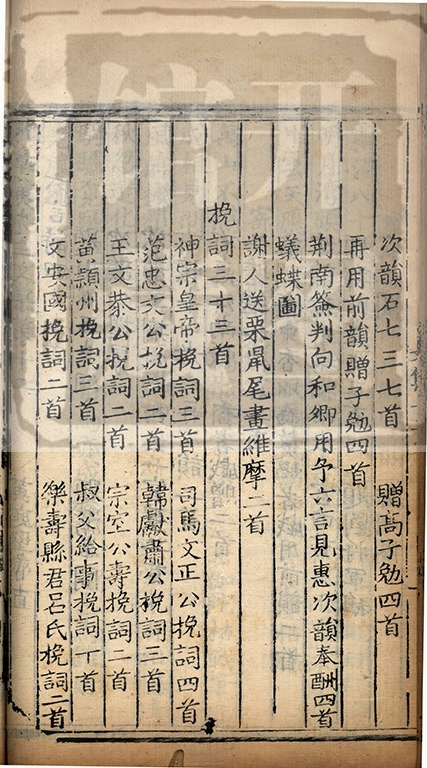 次韻石七三七首　贈高子勉四首
再用前韻贈子勉四首
荆南簽判向和卿用予六言見惠次韻奉酬四首
蟻蝶圖
謝人送栗鼠尾畫維摩二首
挽詞三十三首
神宗皇帝挽詞三首　司馬文正公挽詞四首
范忠文公挽詞二首　韓獻肅公挽詞三首
王文恭公挽詞二首　宗室公壽挽詞二首
苗潁州挽詞三首　叔父給事挽詞十首
文安國挽詞二首　樂壽縣君呂氏挽詞二首